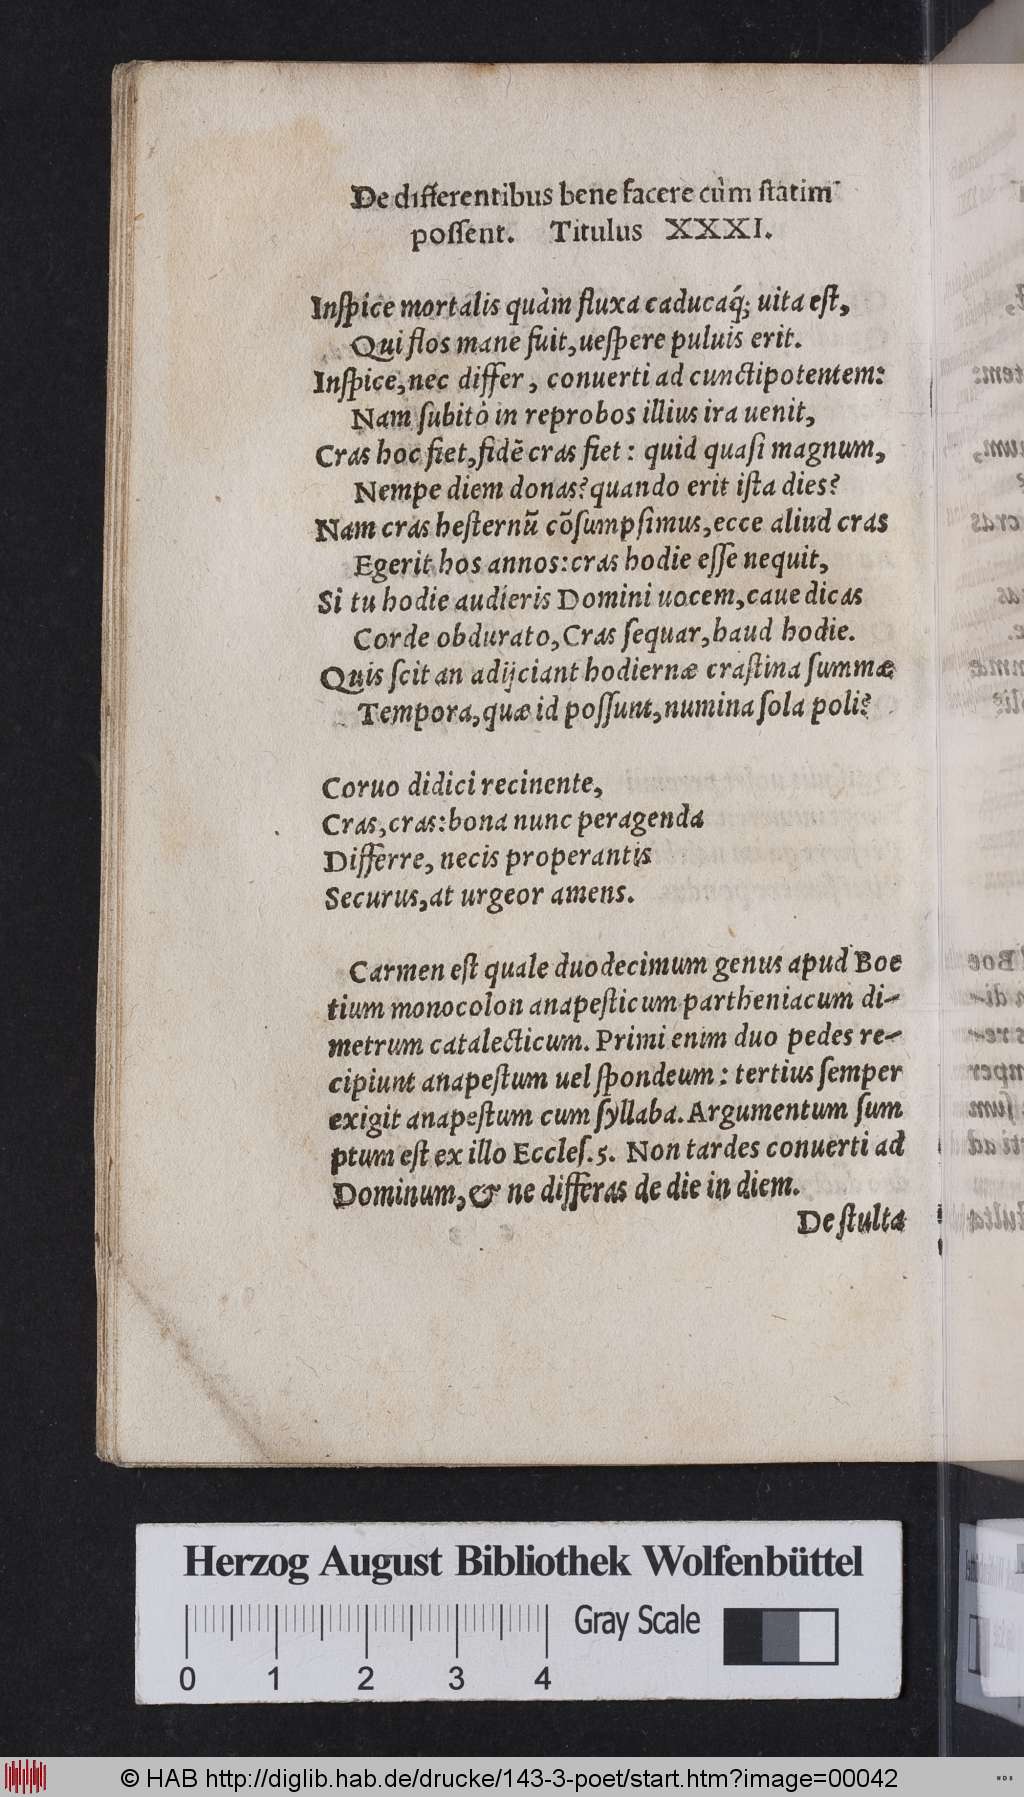 De differentibus bene facere cùm statim
possent. Titulus XXXI.
Inspice mortalis quàm fluxa caducaq́; uita est,
Qui flos mane fuit, uespere puluis erit.
Inspice, nec differ, conuerti ad cunctipotentem:
Nam subitò in reprobos illius ira uenit,
Cras hoc fiet, fidẽ cras fiet: quid quasi magnum,
Nempe diem donas? quando erit ista dies?
Nam cras hesternũ cõsumpsimus, ecce aliud cras
Egerit hos annos: cras hodie esse nequit,
Si tu hodie audieris Domini uocem, caue dicas
Corde obdurato, Cras sequar, haud hodie.
Quis scit an adijciant hodiernæ crastina summæ
Tempora, quæ id possunt, numina sola poli?
Coruo didici recinente,
Cras, cras: bona nunc peragenda
Differre, necis properantis
Securus, at urgeor amens.
Carmen est quale duodecimum genus apud Boe
tium monocolon anapesticum partheniacum di-
metrum catalecticum. Primi enim duo pedes re-
cipiunt anapestum uel spondeum: tertius semper
exigit anapestum cum syllaba. Argumentum sum
ptum est ex illo Eccles. 5. Non tardes conuerti ad
Dominum, & ne differas de die in diem.
De stulta
Herzog August Bibliothek Wolfenbüttel
Gray Scale
0 1 2 3 4
© HAB http://diglib.hab.de/drucke/143-3-poet/start.htm?image=00042